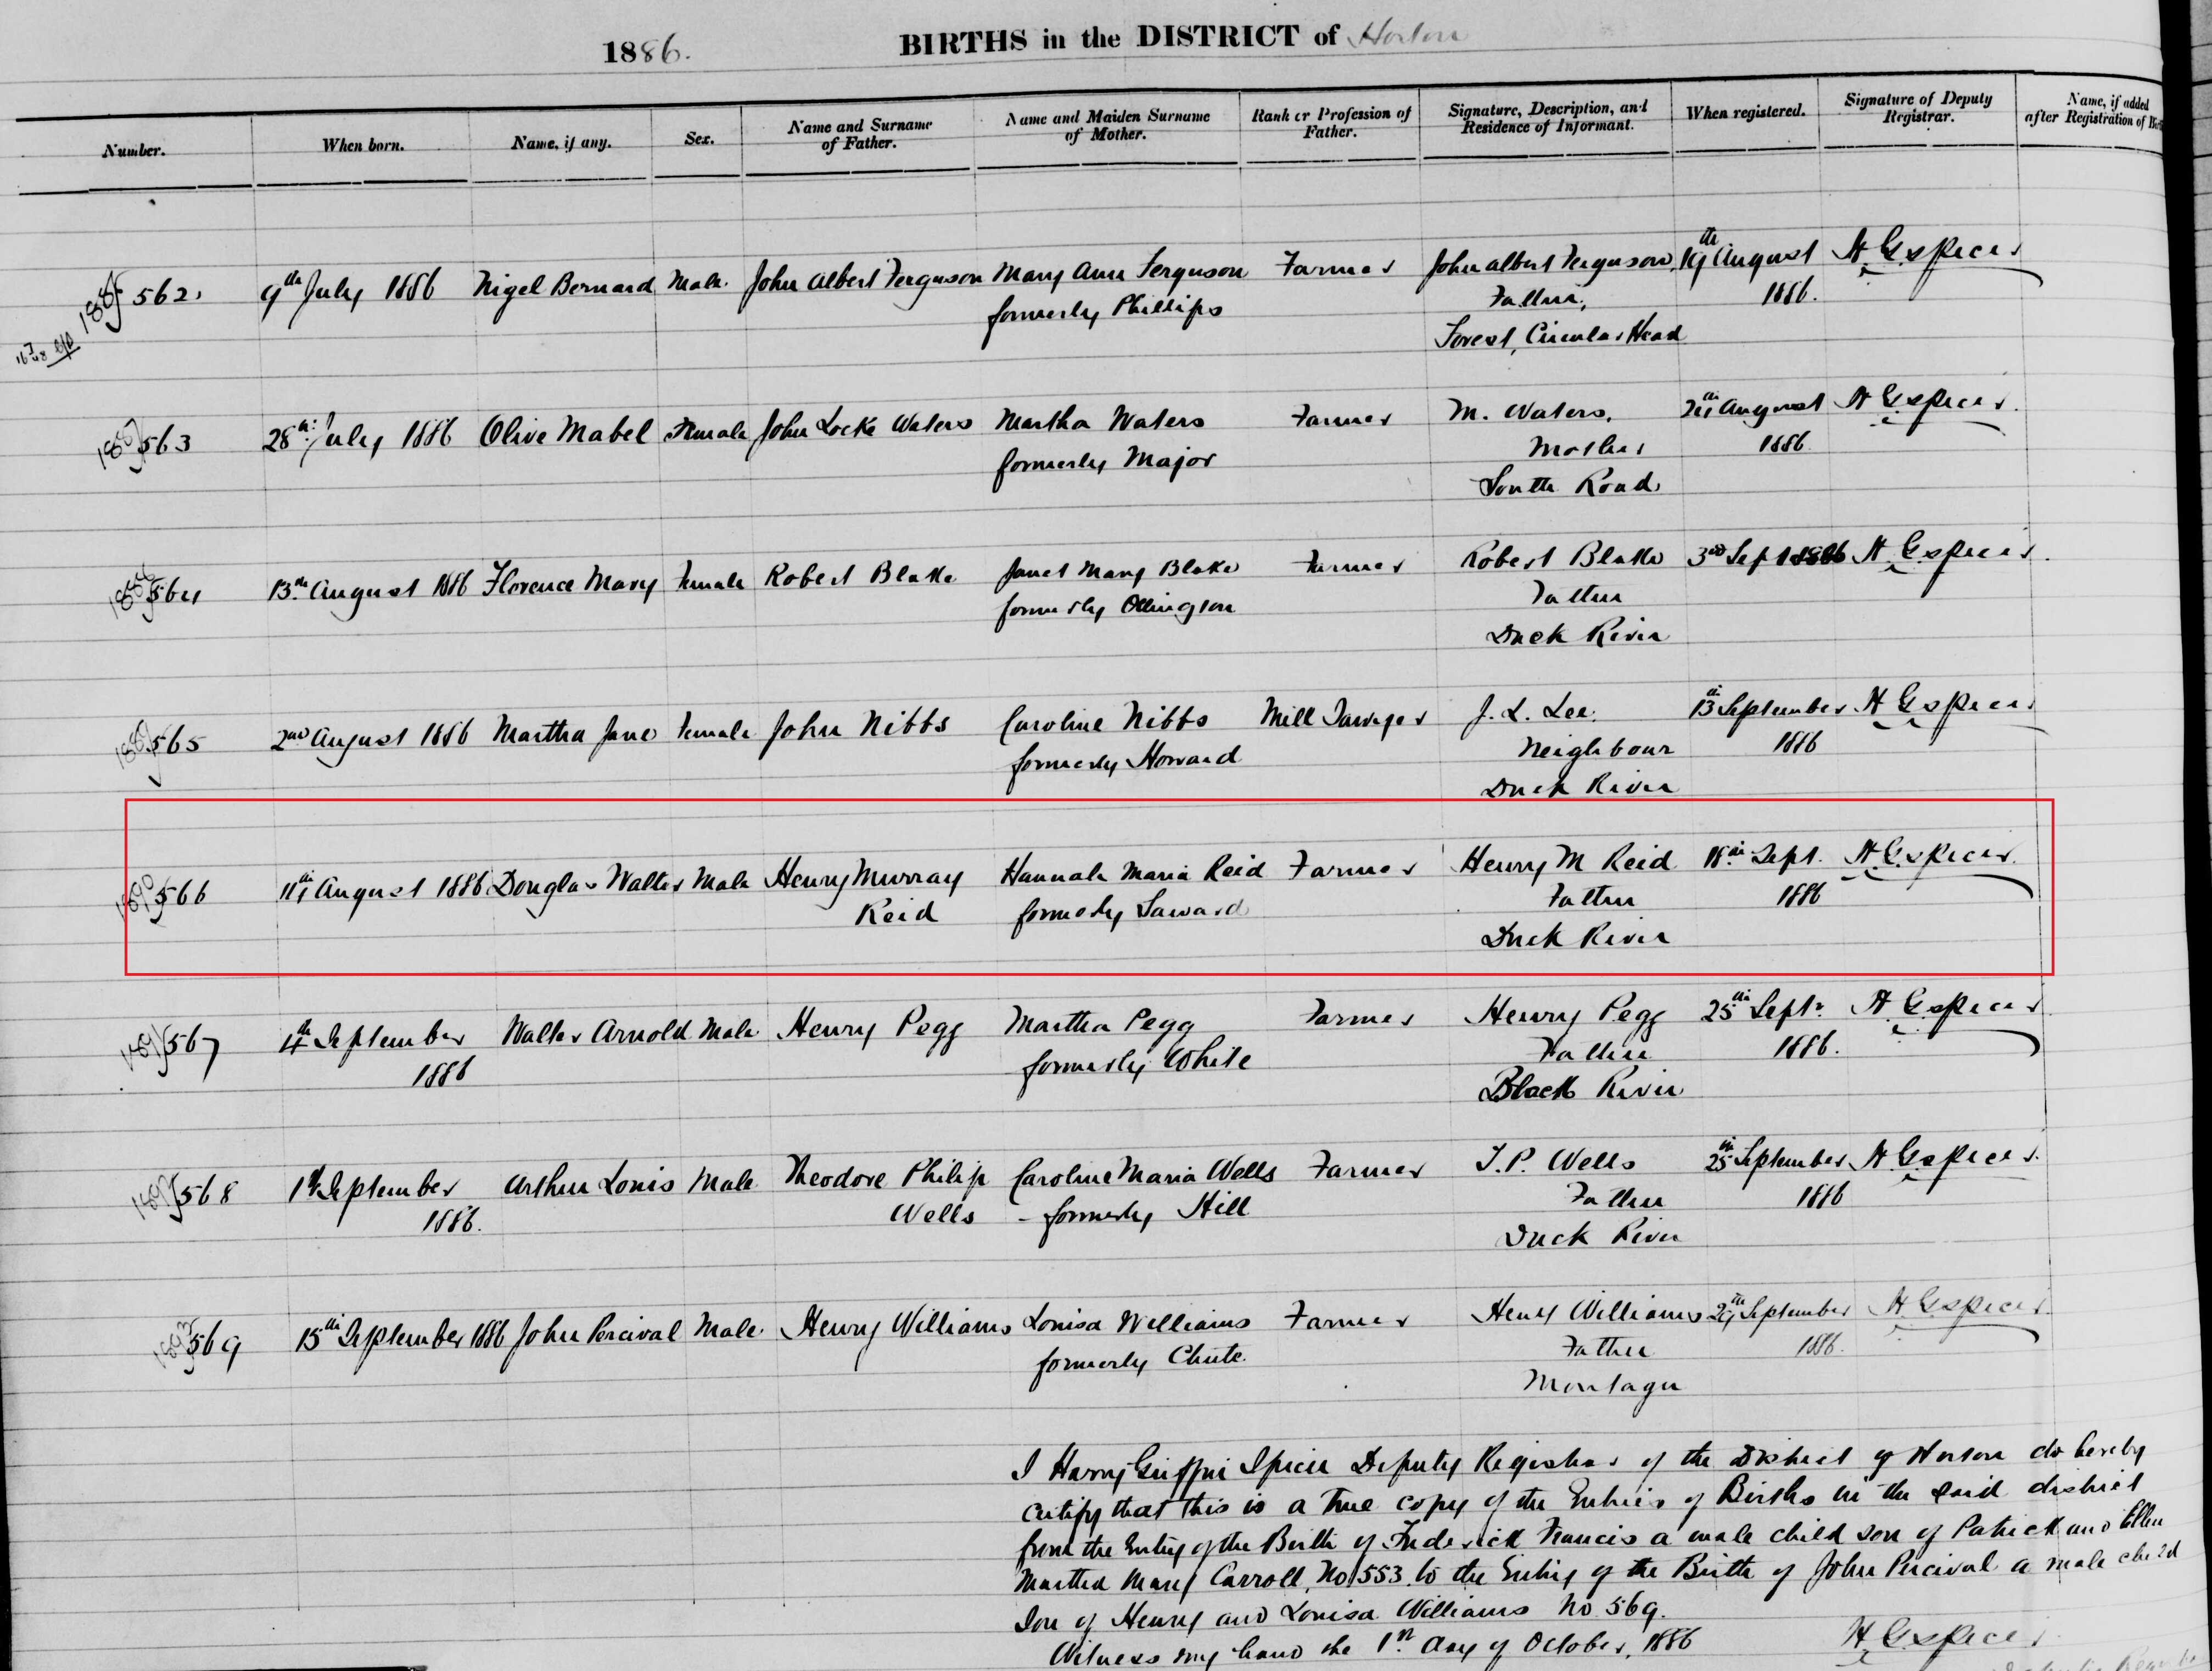 1886. BIRTHS in the DISTRICT of Horton
Number. When born. Name, if any. Sex. Name and Surname of Father. Name and Maiden Surname of Mother. Rank or Profession of Father. Signature, Description, and Residence of Informant. When registered. Signature of Deputy Registrar. Name, if added after Registration of
562. 9th July 1886 Nigel Bernard Male. John Albert Ferguson Mary Ann Ferguson Farmer John Albert Ferguson, 19th August H G Spicer
formerly Phillips Father, 1886.
Forest, Circular Head
563 28th July 1886 Olive Mabel Female John Locke Waters Martha Waters Farmer M. Waters, August H G Spicer
formerly Major Mother 1886.
South Road
564 13th August 1886 Florence Mary Female Robert Blake Janet Mary Blake Farmer Robert Blake 3rd Sept 1886 H G Spicer
formerly Ollington Father
Duck River
565 2nd August 1886 Martha Jane Female John Nibbs Caroline Nibbs Mill Sawyer J. L. Lee. 13th September H G Spicer
formerly Howard Neighbour 1886
Duck River
1890 566 August 1886 Douglas Walter Male Henry Murray Hannah Maria Reid Farmer Henry M Reid 18th Sept. H G Spicer
Reid formerly Saward Father 1886
Duck River
1891 567 4th September Walter Arnold Male Henry Pegg Martha Pegg Farmer Henry Pegg 25th Septr H G Spicer
1886 formerly White Father 1886.
Black River
1892 568 1st September Arthur Louis Male Theodore Philip Caroline Maria Wells Farmer T. P. Wells 25th September H G Spicer
1886. Wells - formerly Hill Father 1886
Duck River
1893 569 15th September 1886 John Percival Male. Henry Williams Louisa Williams Farmer Henry Williams 29th September H G Spicer
formerly Chute. Father 1886.
Montagu
I Harry Griffin Spicer Deputy Registrar of the District of Horton do hereby
certify that this is a true copy of the Entries of Births in the said district
from the Entry of the Birth of Frederick Francis a male child son of Patrick and Ellen
Martha Mary Carroll, No 553 to the Entry of the Birth of John Percival a male child
Son of Henry and Louisa Williams No 569.
Witness my hand the 1st day of October, 1886
H G Spicer